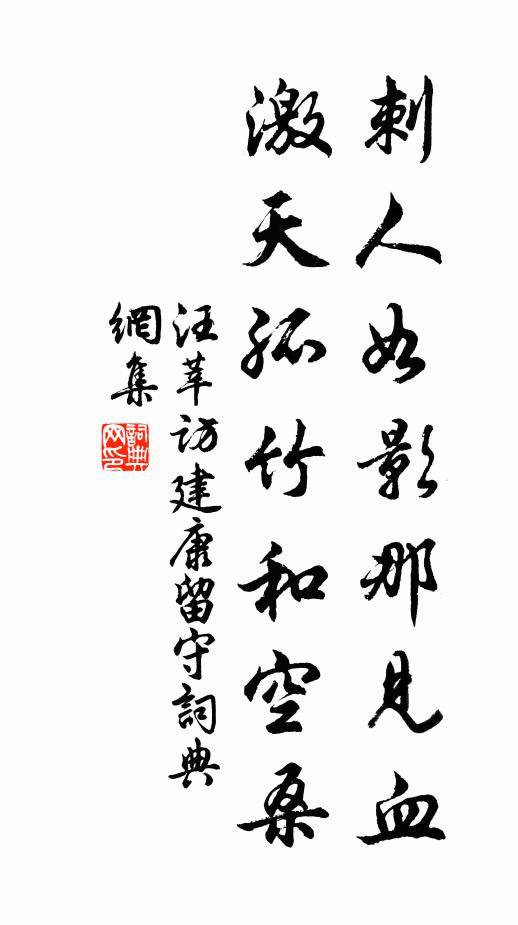 刺人如影那見血
激天孤竹和空桑
汪萃訪建康留守詞典
網集
詞典
网印